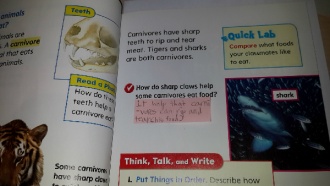 animals
at?
als are
A carnivore
that eats
animals.
Teeth
Read a Ph
How do
teeth help
carnivore
Some carnivores
have sharp claws
Carnivores have sharp
teeth to rip and tear
meat. Tigers and sharks
are both carnivores.
How do sharp claws help
some carnivores eat food?
It help that
can rip and
Think, Talk, and Write
1. Put Things in Order. Describe how
Quick Lab
Compare what foods
your classmates like
to eat.
shark